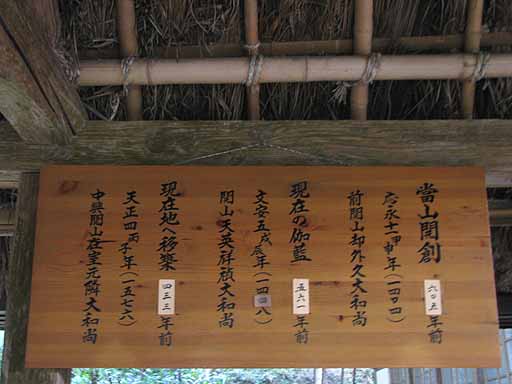 當山開創 六〇五年前
応永十一甲申年（一四〇四）
前開山却外久大和尚
現在の伽藍 五六一年前
文安五戊辰年（一四四八）
開山天英祥貞大和尚
現在地へ移築 四三三年前
天正四丙子年（一五七六）
中興開山在室元隣大和尚